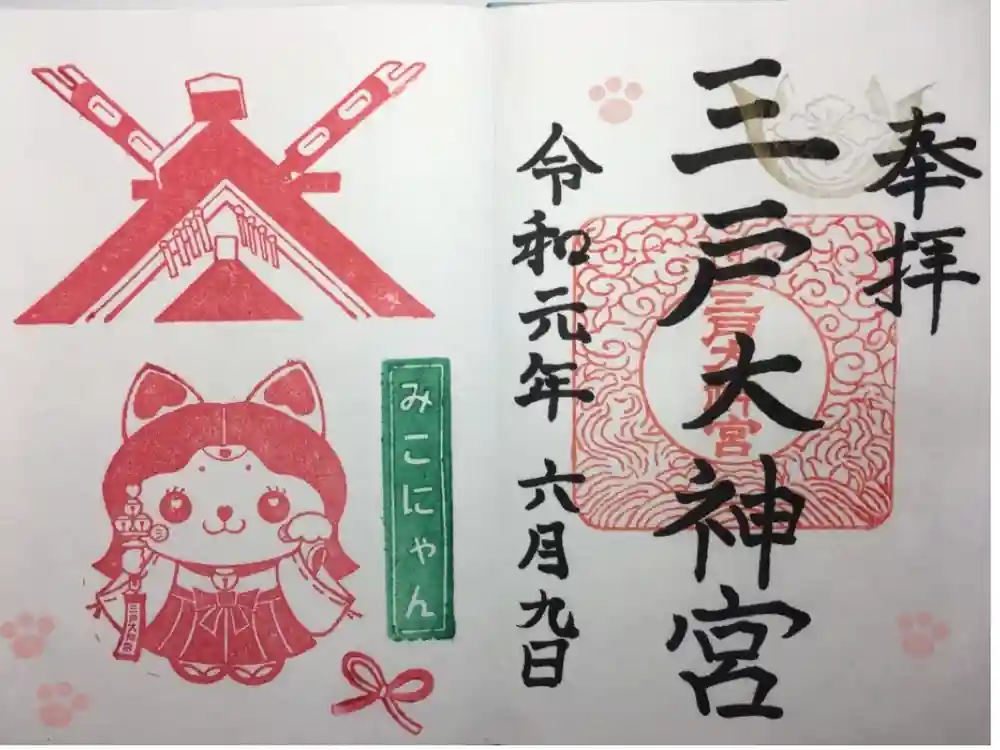 奉拝
三戸大神宮
三戸大神宮
令和元年 六月九日
みこにゃん
三戸大神宮